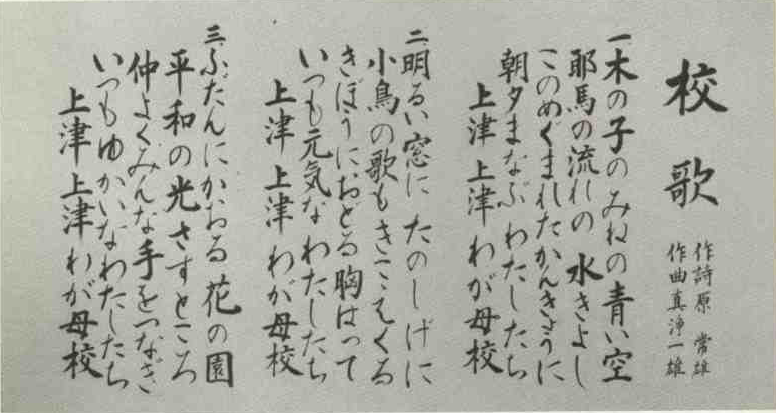 校歌
作詩 原 常雄
作曲 真浄一雄
一 木の子のみねの青い空
耶馬の流れの 水きよし
このめぐまれたかんきょうに
朝夕まなぶ わたしたち
上津 上津 わが母校
二 明るい窓に たのしげに
小鳥の歌もきこえくる
きぼうにおどる胸はって
いつも元気な わたしたち
上津 上津 わが母校
三 ふだんにかおる 花の園
平和の光さすところ
仲よくみんな手をつなぎ
いつもゆかいなわたしたち
上津 上津 わが母校